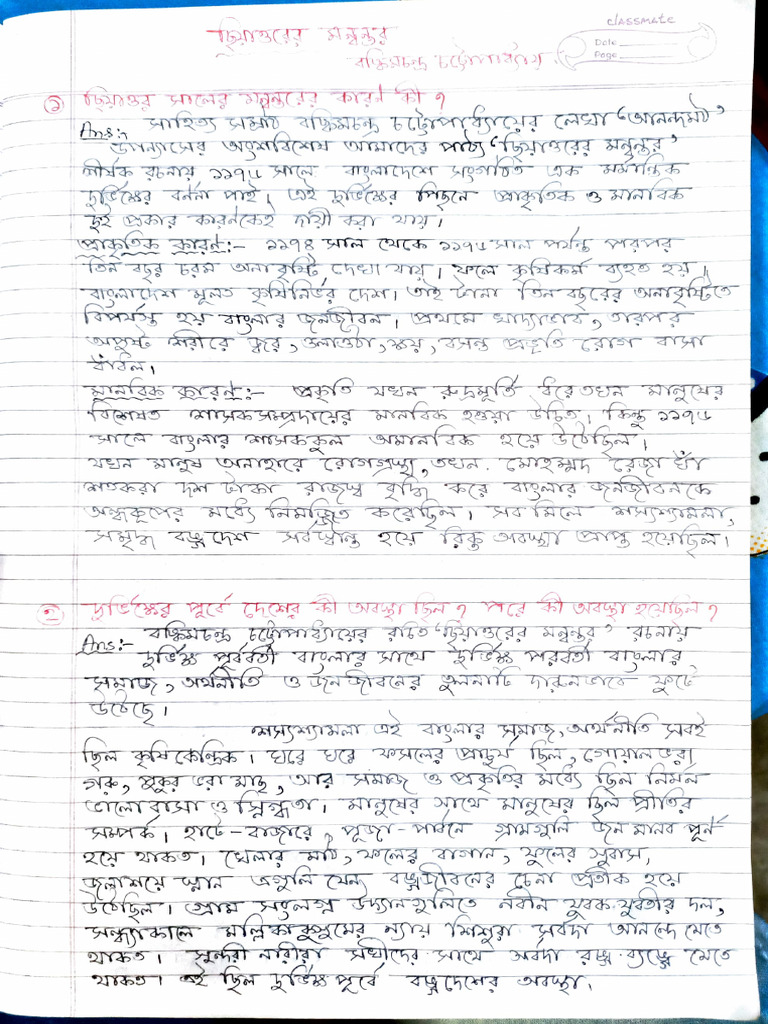 classmate
Date
Page
ছিয়াত্তরের মন্বন্তর
বঙ্কিমচন্দ্র চট্টোপাধ্যায়
১ ছিয়াত্তর সালের মন্বন্তরের কারণ কী ?
Ans:- সাহিত্য সম্রাট বঙ্কিমচন্দ্র চট্টোপাধ্যায়ের লেখা 'আনন্দমঠ'
উপন্যাসের অংশবিশেষ আমাদের পাঠ্য 'ছিয়াত্তরের মন্বন্তর'
শীর্ষক রচনায় ১১৭৬ সালে বাংলাদেশে সংগঠিত এক মর্মান্তিক
দুর্ভিক্ষের বর্ণনা পাই। এই দুর্ভিক্ষের পিছনে প্রাকৃতিক ও মানবিক
দুই প্রকার কারণকেই দায়ী করা যায়।
প্রাকৃতিক কারণ:- ১১৭৪ সাল থেকে ১১৭৬ সাল পর্যন্ত পরপর
তিন বছর চরম অনাবৃষ্টি দেখা যায়। ফলে কৃষিকর্ম ব্যহত হয়।
বাংলাদেশ মূলত কৃষিনির্ভর দেশ। তাই টানা তিন বছরের অনাবৃষ্টিতে
বিপর্যস্ত হয় বাংলার জনজীবন। প্রথমে খাদ্যাভাব, তারপর
অপুষ্ট শরীরে জ্বর, ওলাওঠা, ক্ষয়, বসন্ত প্রভৃতি রোগ বাসা
বাঁধিল।
মানবিক কারণ:- প্রকৃতি যখন রুদ্রমূর্তি ধরে তখন মানুষের
বিশেষত শাসকসম্প্রদায়ের মানবিক হওয়া উচিত। কিন্তু ১১৭৬
সালে বাংলার শাসককুল অমানবিক হয়ে উঠেছিল।
যখন মানুষ অনাহারে রোগগ্রস্থ, তখন মোহম্মদ রেজা খাঁ
শতকরা দশ টাকা রাজস্ব বৃদ্ধি করে বাংলার জনজীবনকে
অন্ধকূপের মধ্যে নিমজ্জিত করেছিল। সব মিলে শস্যশ্যামলা,
সমৃদ্ধ বঙ্গদেশ সর্বস্বান্ত হয়ে রিক্ত অবস্থা প্রাপ্ত হয়েছিল।
২ দুর্ভিক্ষের পূর্বে দেশের কী অবস্থা ছিল ? পরে কী অবস্থা হয়েছিল ?
Ans:- বঙ্কিমচন্দ্র চট্টোপাধ্যায়ের রচিত 'ছিয়াত্তরের মন্বন্তর' রচনায়
দুর্ভিক্ষ পূর্ববর্তী বাংলার সাথে দুর্ভিক্ষ পরবর্তী বাংলার
সমাজ, অর্থনীতি ও জনজীবনের তুলনাটি দারুনভাবে ফুটে
উঠেছে।
শস্যশ্যামলা এই বাংলার সমাজ, অর্থনীতি সবই
ছিল কৃষিকেন্দ্রিক। ঘরে ঘরে ফসলের প্রাচুর্য ছিল, গোয়াল ভরা
গরু, পুকুর ভরা মাছ, আর সমাজ ও প্রকৃতির মধ্যে ছিল নির্মল
ভালোবাসা ও স্নিগ্ধতা। মানুষের সাথে মানুষের ছিল প্রীতির
সম্পর্ক। হাটে-বাজারে, পূজা-পার্বনে গ্রামগুলি জনমানব পূর্ণ
হয়ে থাকত। খেলার মাঠ, ফলের বাগান, ফুলের সুবাস,
জলাশয়ে স্নান এগুলি যেন বঙ্গজীবনের চেনা প্রতীক হয়ে
উঠেছিল। গ্রাম সংলগ্ন উদ্যানগুলিতে নবীন যুবক-যুবতীর দল,
সন্ধ্যাকালে মল্লিকাকুসুমের ন্যায় শিশুরা সর্বদা আনন্দে মেতে
থাকত। সুন্দরী নারীরা সখীদের সাথে সর্বদা রঙ্গ ব্যঙ্গে মেতে
থাকত। এই ছিল দুর্ভিক্ষ পূর্বে বঙ্গদেশের অবস্থা।